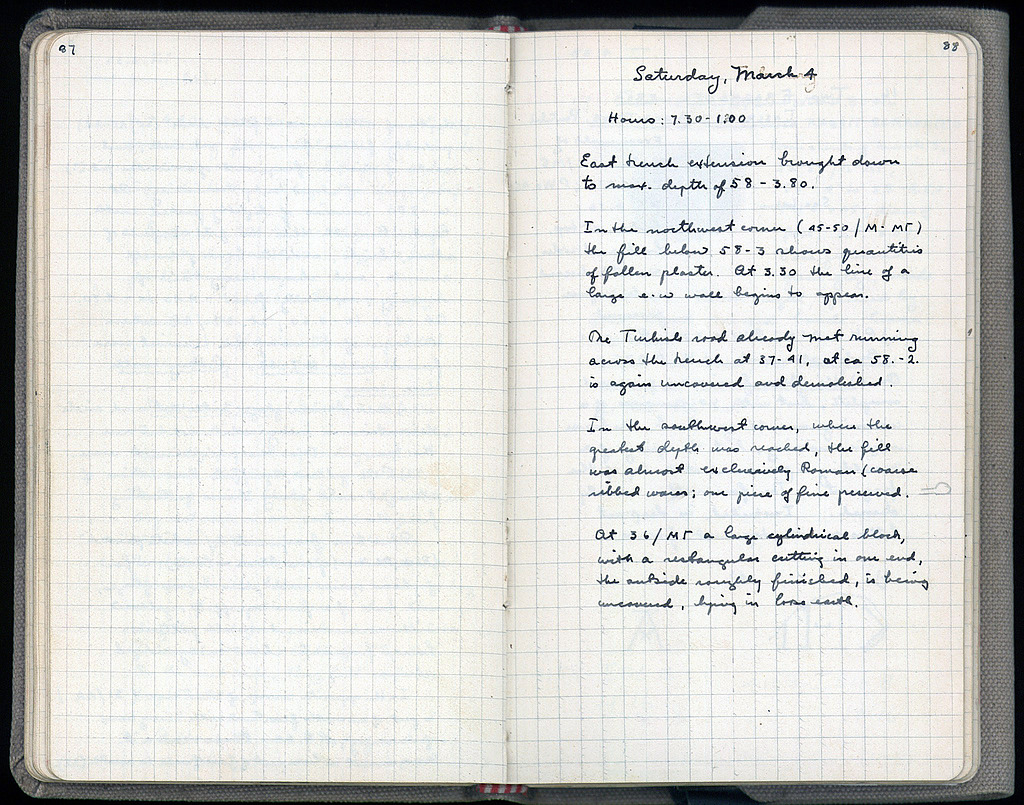 87
88
Saturday, March 4
Hours: 7.30-1:00
East trench extension brought down
to max. depth of 58 - 3.80.
In the northwest corner (45-50/M-ΜΓ)
the fill below 58-3 shows quantities
of fallen plaster. At 3.30 the line of a
large e-w wall begins to appear.
The Turkish road already met running
across the trench at 37-41, at ca 58.-2.
is again uncovered and demolished.
In the southwest corner, where the
greatest depth was reached, the fill
was almost exclusively Roman (coarse
ribbed wares; one piece of fine preserved.
At 36/ΜΓ a large cylindrical block,
with a rectangular cutting in one end,
the outside roughly finished, is being
uncovered, lying in loose earth.